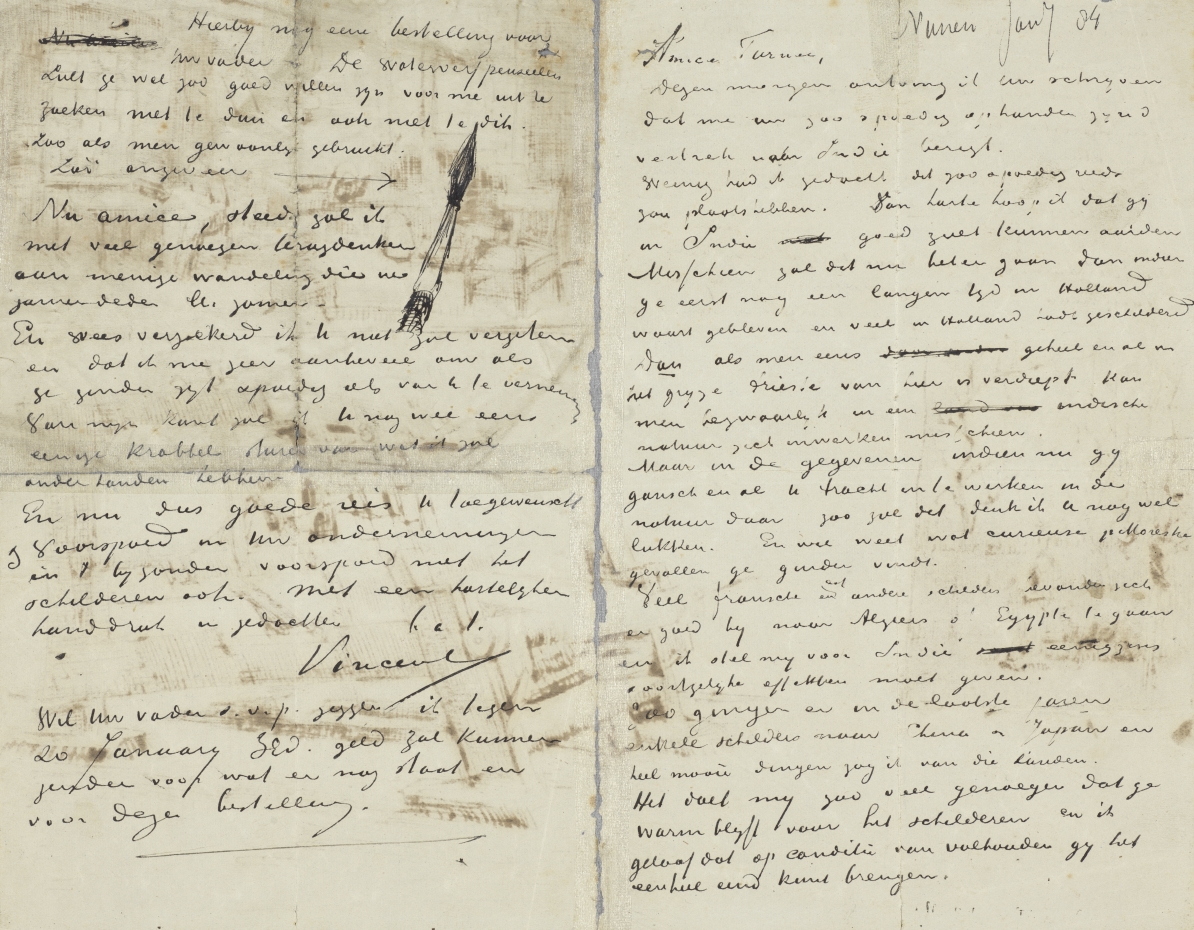 Nunen Jan^y 84
Amice Furnee,
Dezen morgen ontving ik Uw schrijven
dat me uw zoo spoedig ophanden zijnd
vertrek naar Indie berigt.
Weinig had ik gedacht dit zoo spoedig reeds
zou plaats hebben. Van harte hoop ik dat gy
in Indie goed zult kunnen aarden
Misschien zal dit nu beter gaan dan indien
ge eerst nog een langen tyd in Holland
waart gebleven en veel in Holland hadt geschilderd
Dan als men eens geheel en al in
het gryze driesie van hier is verdiept kan
men bezwaarlyk in een indische
natuur zich inwerken misschien.
Maar in de gegevenen indien nu gy
gansch en al U tracht in te werken in de
natuur daar zoo zal dit denk ik U nog wel
lukken. En wie weet wat curieuse pittoreske
gevallen ge ginder vindt.
Veel fransche en andere schilders vonden zich
er goed by naar Algiers o Egypte te gaan
en ik stel my voor Indie eenigzins
soortgelyke effekten moet geven.
Zoo gingen er in de laatste jaren
enkele schilders naar China o Japan en
heel mooie dingen zag ik van die landen.
Het doet my zoo veel genoegen dat ge
warm blyft voor het schilderen en ik
geloof dat op conditie van volhouden gy het
een heel eind kunt brengen.
Hierby nog eene bestelling voor
Uw vader De Waterverfpenseelen
Zult ge wel zoo goed willen zyn voor me uit te
zoeken niet te dun en ook niet te dik.
Zoo als men gewoonlyk gebruikt.
Zóó ongeveer
Nu amice, steeds zal ik
met veel genoegen terugdenken
aan menige wandeling die we
zamen deden &c zamen.
En wees verzekerd ik U niet zal vergeten
en dat ik me zeer aanbeveel om als
ge ginder zyt spoedig iets van U te vernemen
Van myn kant zal ik U nog wel eens
eenige krabbel sturen van wat ik zal
onder handen hebben.
En nu dus goede reis U toegewenscht
& Voorspoed in Uw ondernemingen
in 't byzonder voorspoed met het
schilderen ook. Met een hartelyken
handdruk in gedachten t. à. t.
Vincent
Wil Uw vader s.v.p. zeggen ik tegen
20 January ZEd. geld zal kunnen
zenden voor wat er nog staat en
voor deze bestelling.